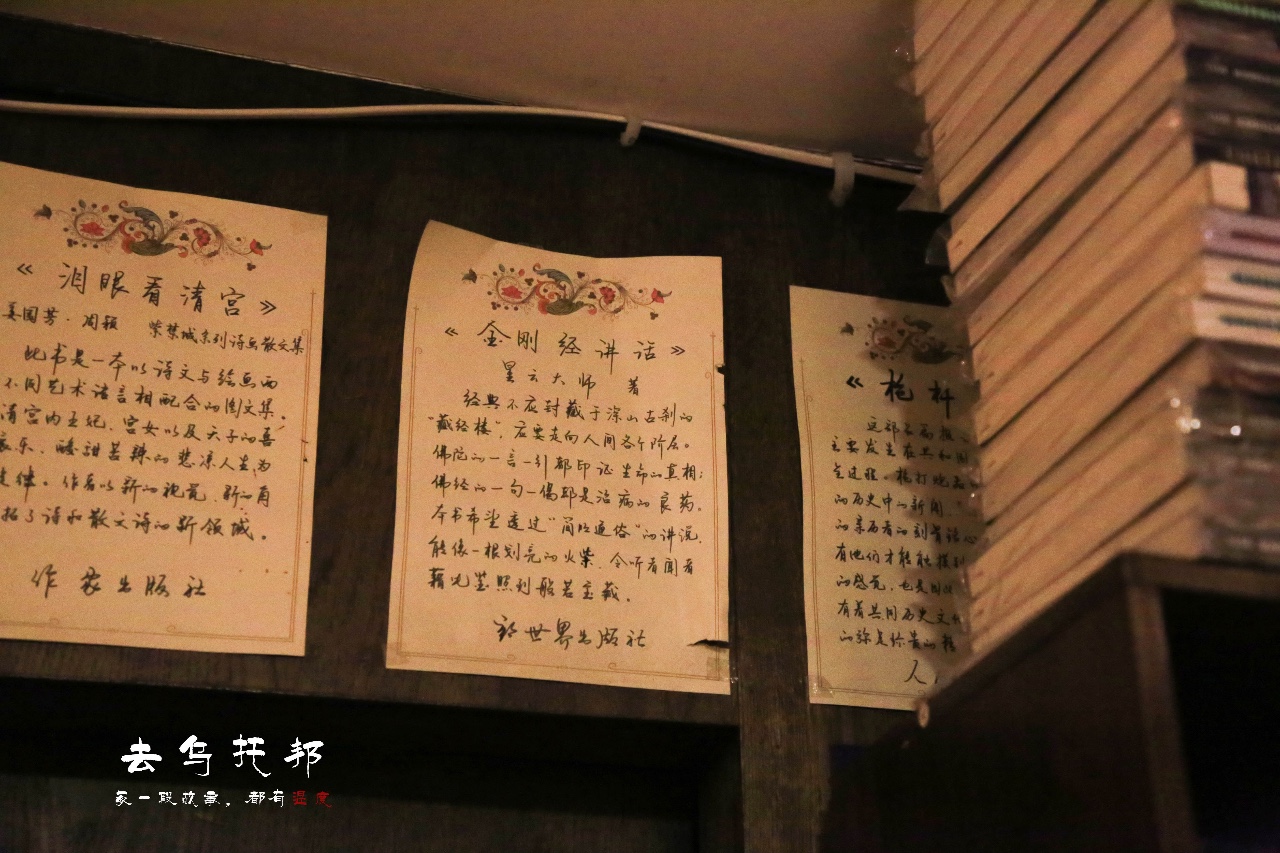 《泪眼看清宫》
姜国芳·周毅 紫禁城系列诗画散文集
此书是一本以诗文与绘画两
不同艺术语言相配合的图文集。
清宫内王妃、宫女以及天子的喜
哀乐、酸甜苦辣的悲凉人生为
旋律。作者以新的视觉、新的角
拓了诗和散文诗的新领域。
作家出版社
《金刚经讲话》
星云大师 著
经典不应封藏于深山古刹的
“藏经楼”,应要走向人间各个阶层。
佛陀的一言一引都印证生命的真相;
佛经的一句一偈都是治病的良药。
本书希望透过“简洁通俗”的讲说,
能像一根划亮的火柴,令听者闻者
藉此鉴照到般若宝藏。
新世界出版社
《枪杆
主要发生在共和国
的历史中的新闻
的亲历者的
有他们才能触摸到
的感觉,也是
有着共同历史文
人
去乌托邦
每一段故事,都有温度